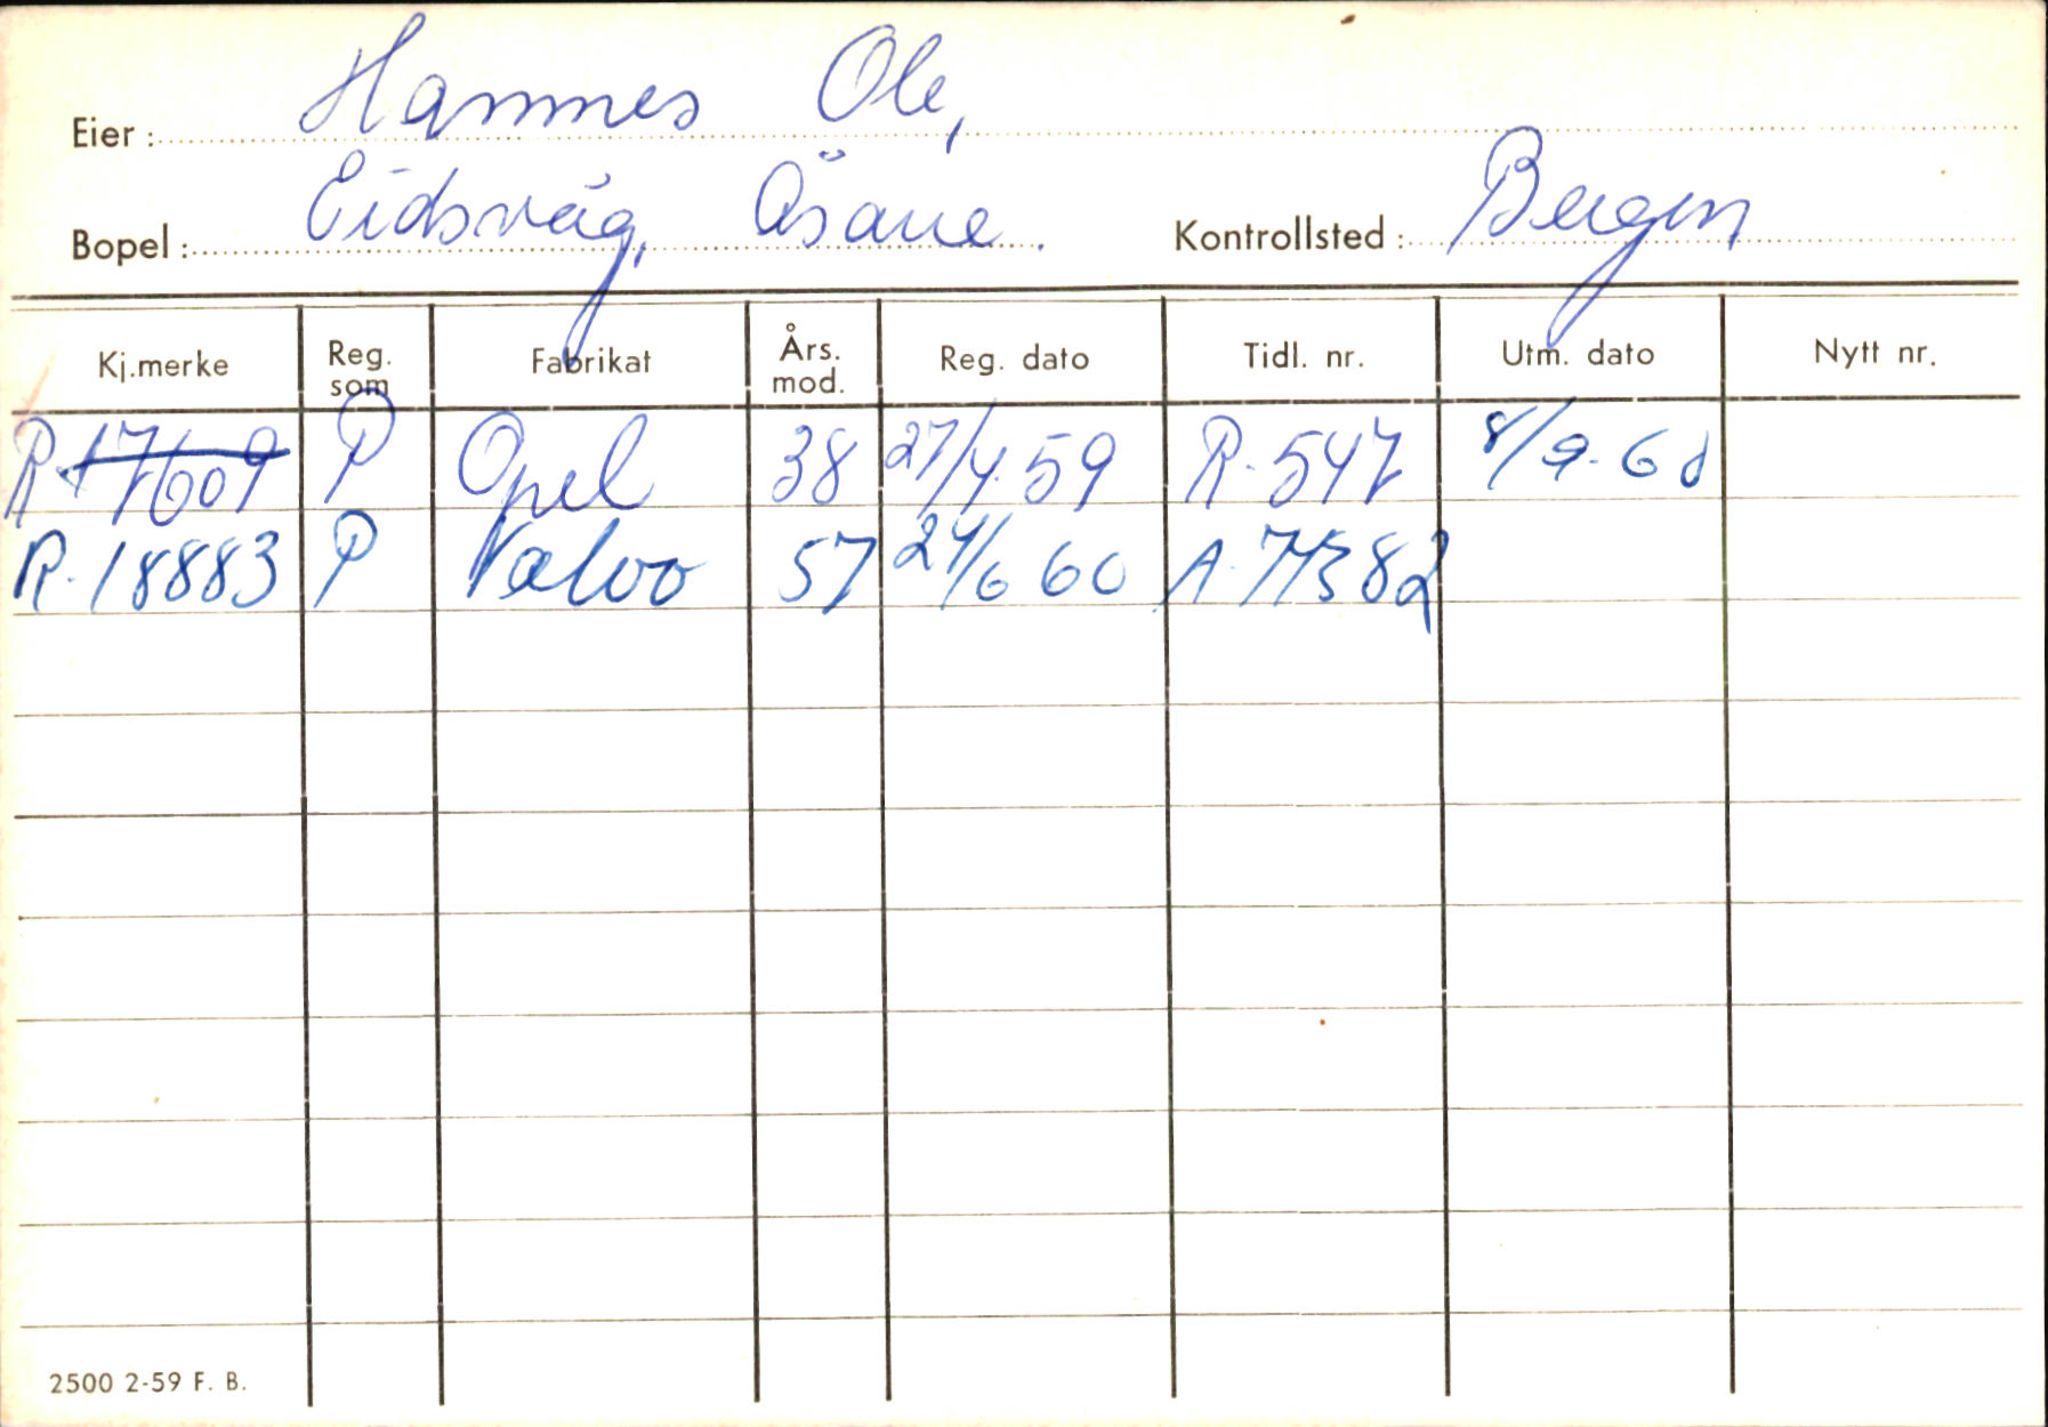 Eier: Hammes Ole,
Bopel: Eidsvåg, Åsane. Kontrollsted: Bergen
Kj.merke Reg. som Fabrikat Års. mod. Reg. dato Tidl. nr. Utm. dato Nytt nr.
R-17609 P Opel 38 27/4.59 R-547 8/9-60
R-18883 P Volvo 57 24/6 60 A-77382
2500 2-59 F. B.